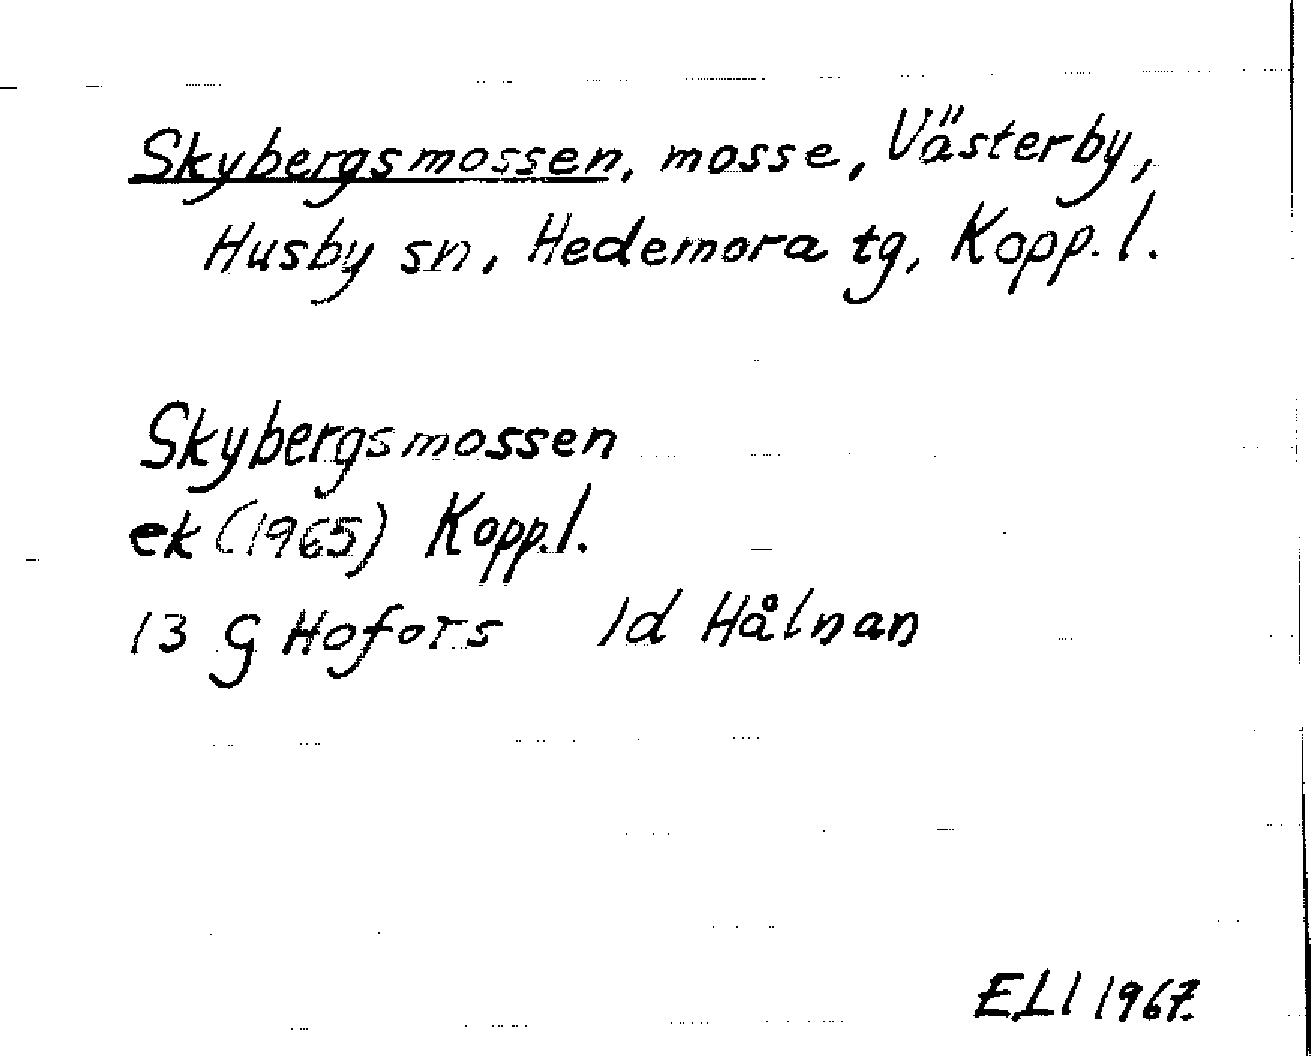 Skybergsmossen, mosse, Västerby,
Husby sn, Hedemora tg, Kopp. l.
Skybergsmossen
ek (1965) Kopp. l.
13 G Hofors 1d Hålnan
ELI 1967.